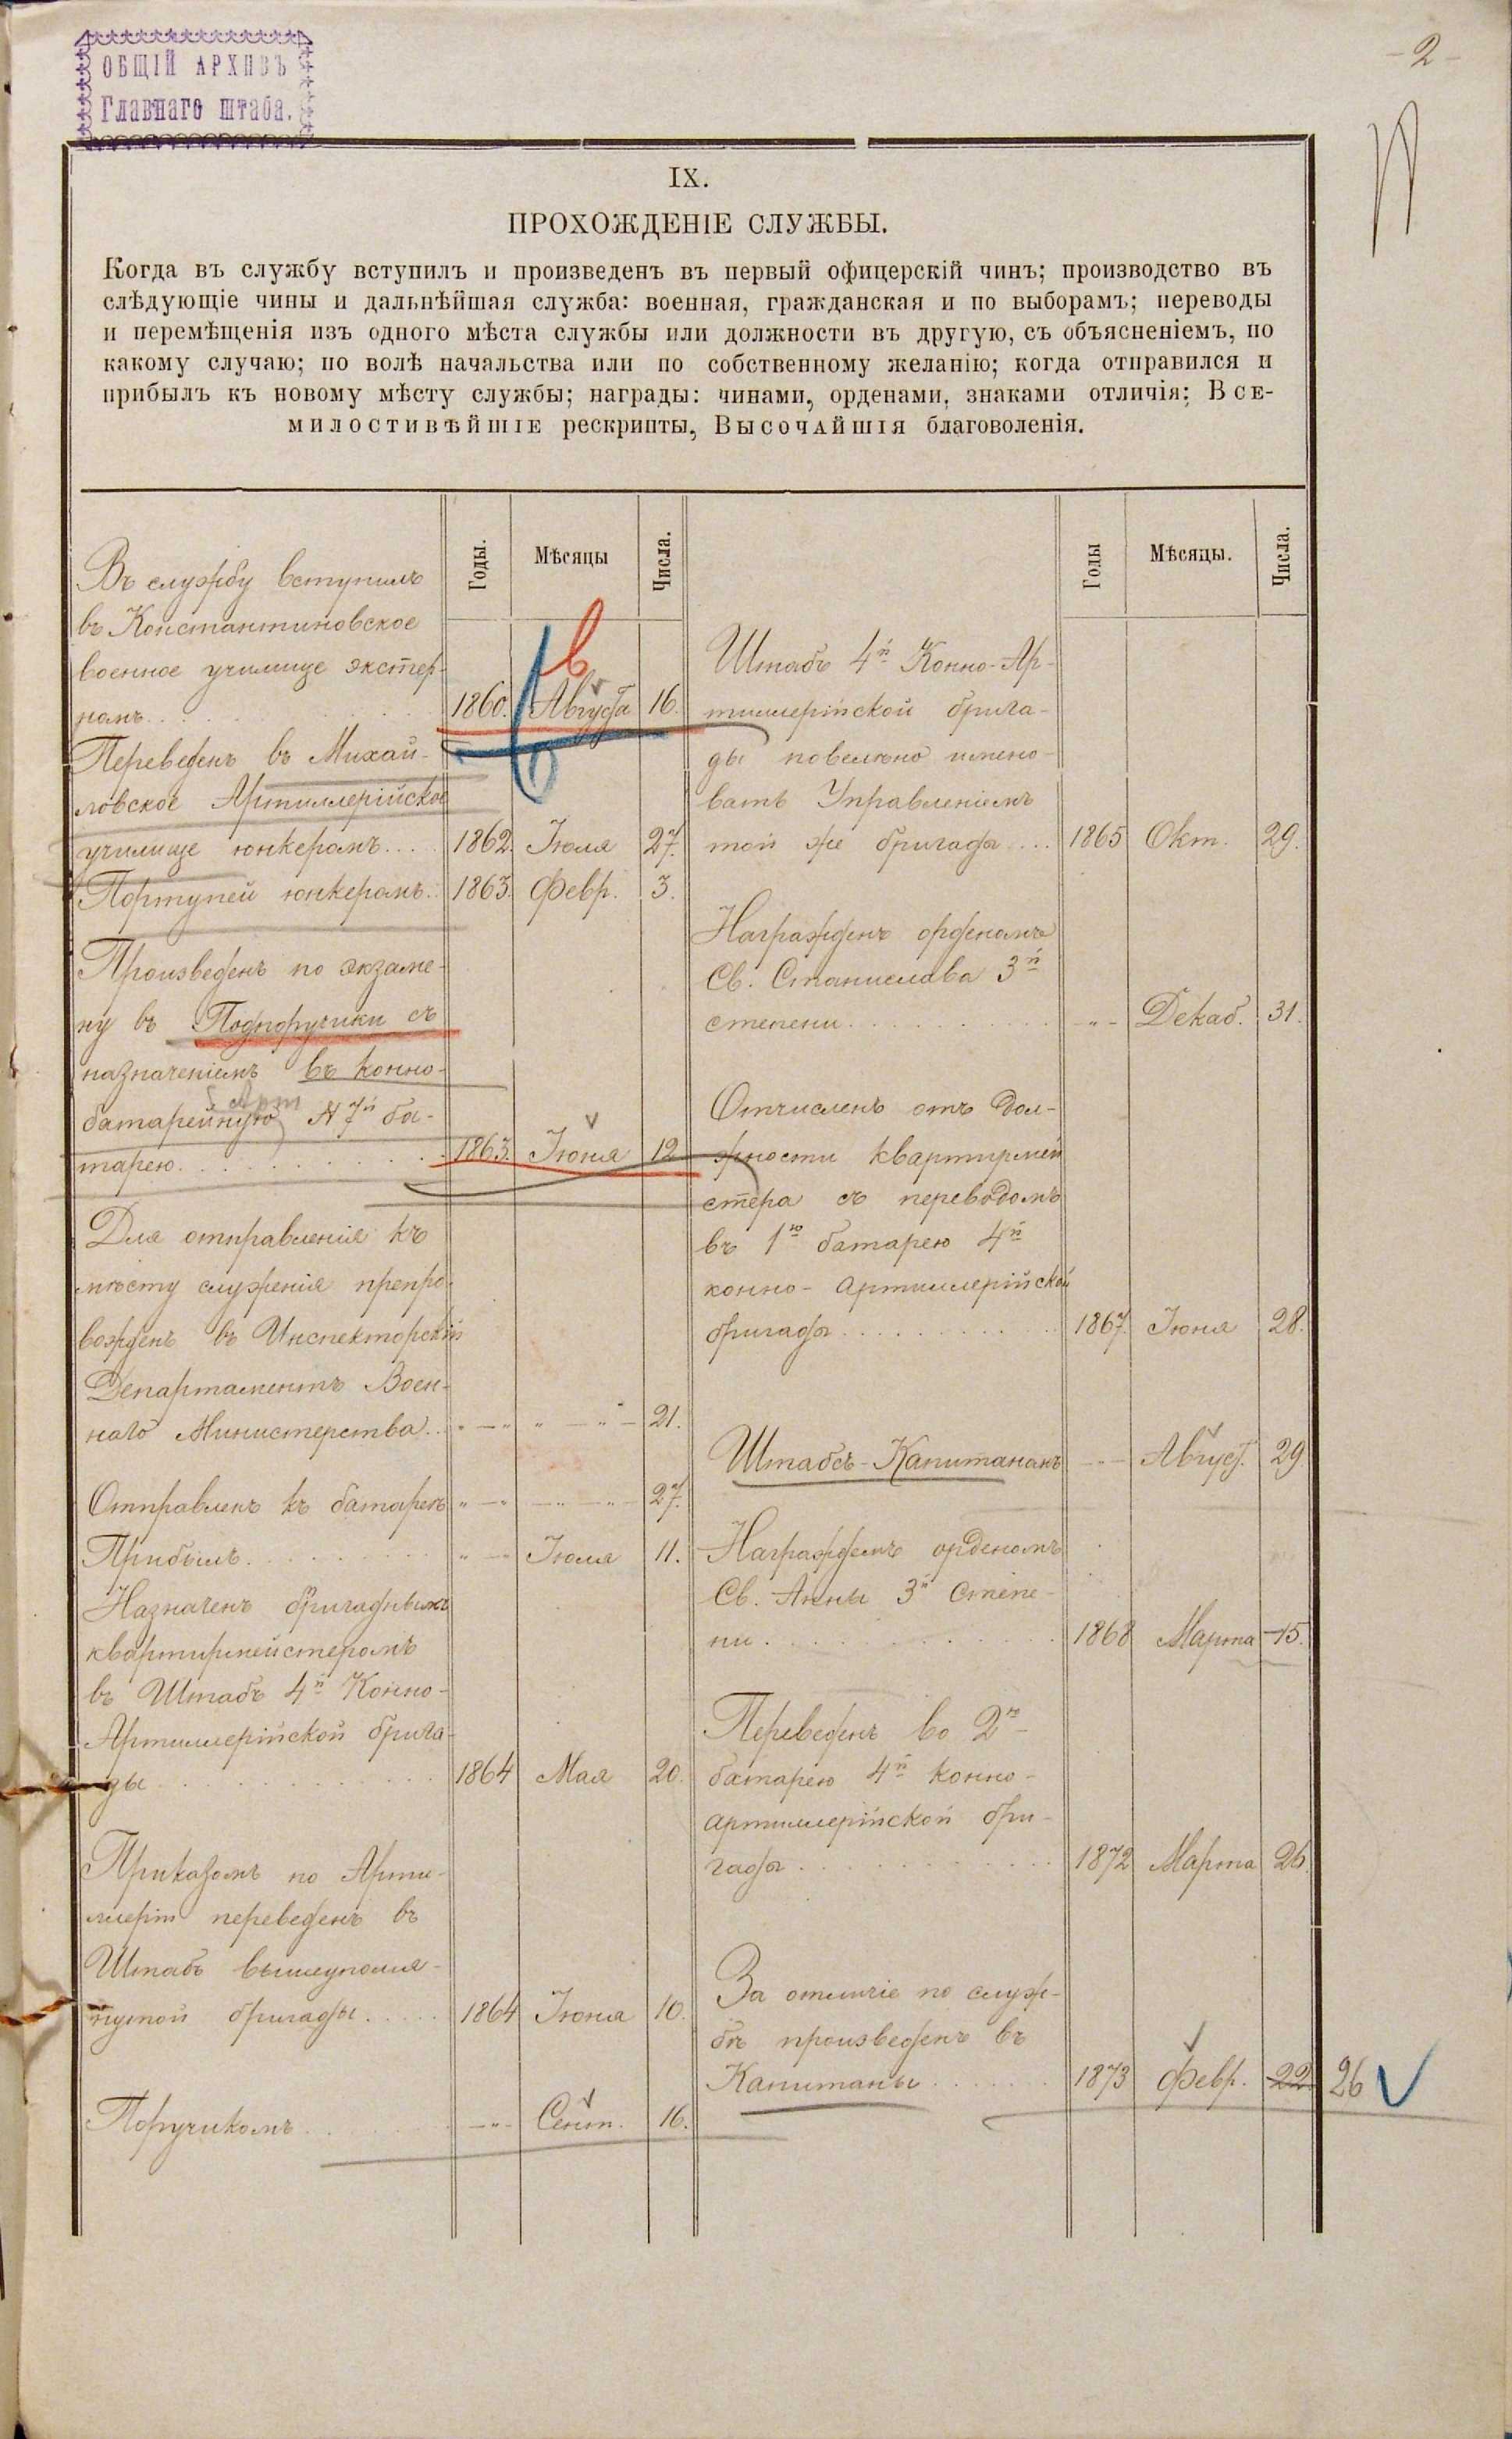 ОБЩІЙ АРХИВЪ
Главнаго штаба.
- 2 -
IX.
ПРОХОЖДЕНІЕ СЛУЖБЫ.
Когда въ службу вступилъ и произведенъ въ первый офицерскій чинъ; производство въ
слѣдующіе чины и дальнѣйшая служба: военная, гражданская и по выборамъ; переводы
и перемѣщенія изъ одного мѣста службы или должности въ другую, съ объясненіемъ, по
какому случаю; по волѣ начальства или по собственному желанію; когда отправился и
прибылъ къ новому мѣсту службы; награды: чинами, орденами, знаками отличія; ВСЕ-
МИЛОСТИВѢЙШІЕ рескрипты, ВЫСОЧАЙШІЯ благоволенія.
Годы. Мѣсяцы Числа.
Въ службу вступилъ
въ Константиновское
военное училище экстер-
номъ . . . 1860. Августа 16.
Переведенъ въ Михай-
ловское Артиллерійское
училище юнкеромъ . . . . 1862. Іюля 27.
Портупей юнкеромъ . . 1863. Февр. 3.
Произведенъ по экзаме-
ну въ Подпоручики съ
назначеніемъ въ конно-
Арт
батарейную № 7й ба-
тарею . . . . . . . . . 1863. Іюня 12
Для отправленія къ
мѣсту служенія препро-
вожденъ въ Инспекторскій
Департаментъ Воен-
наго Министерства . . " — " " — " — 21.
Отправленъ къ батареѣ " — " — " — " — 27.
Прибылъ . . . . . . . . " — " Іюля 11.
Назначенъ бригаднымъ
квартирмейстеромъ
въ Штабъ 4й Конно-
Артиллерійской брига-
ды . . . . . . . . . . 1864 Мая 20.
Приказомъ по Арти-
ллеріи переведенъ въ
Штабъ вышеупомя-
нутой бригады . . . . . 1864 Іюня 10.
Поручикомъ . . . . . . — " — Сент. 16.
Годы Мѣсяцы. Числа.
Штабъ 4й Конно-Ар-
тиллерійской брига-
ды повелѣно имено-
вать Управленіемъ
той же бригады . . . 1865 Окт. 29.
Награжденъ орденомъ
Св. Станислава 3й
степени . . . . . . . . . . — " — Декаб. 31.
Отчисленъ отъ дол-
жности квартирмей
стера съ переводомъ
въ 1ю батарею 4й
конно-артиллерійской
бригады . . . . . . . . . . 1867. Іюня 28.
Штабсъ-Капитаномъ — " — Август. 29
Награжденъ орденомъ
Св. Анны 3й степе-
ни . . . . . . . . . . . . 1868 Марта 15.
Переведенъ во 2ю
батарею 4й конно-
артиллерійской бри-
гады . . . . . . . . . . . 1872 Марта 26.
За отличіе по служ-
бѣ произведенъ въ
Капитаны . . . . . . . 1873 Февр. 22 26